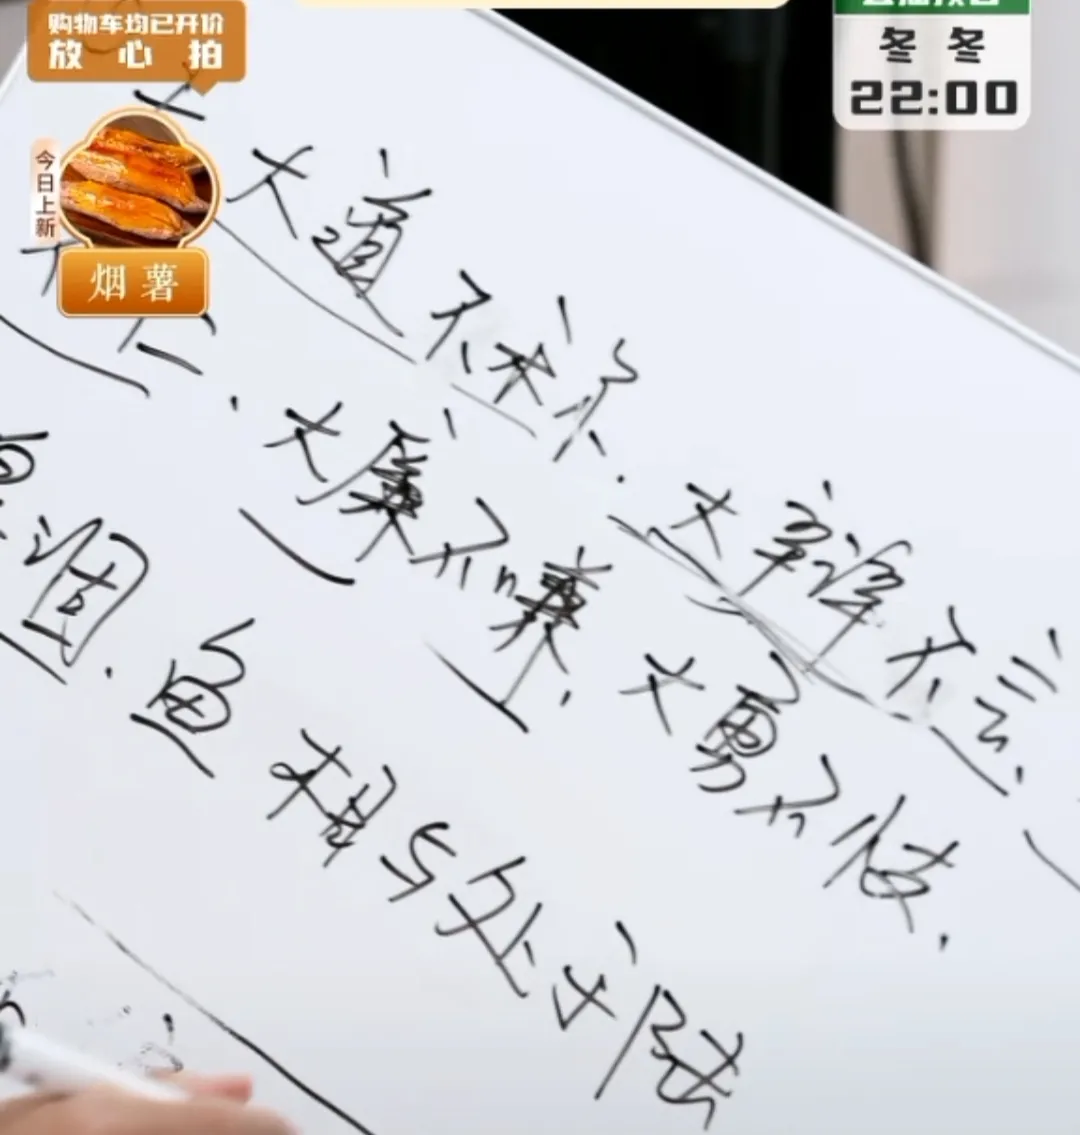 购物车均已开价
放心拍
冬冬
22:00
今日上新
烟薯
大道不称.大辩不言.
仁.大廉不嗛.大勇不忮.
涸.鱼相与处于陆